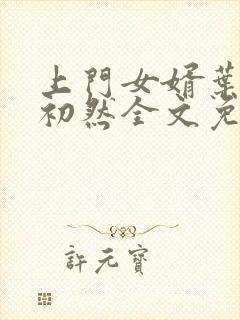 上門女婿葉
初然全文免
許元寶